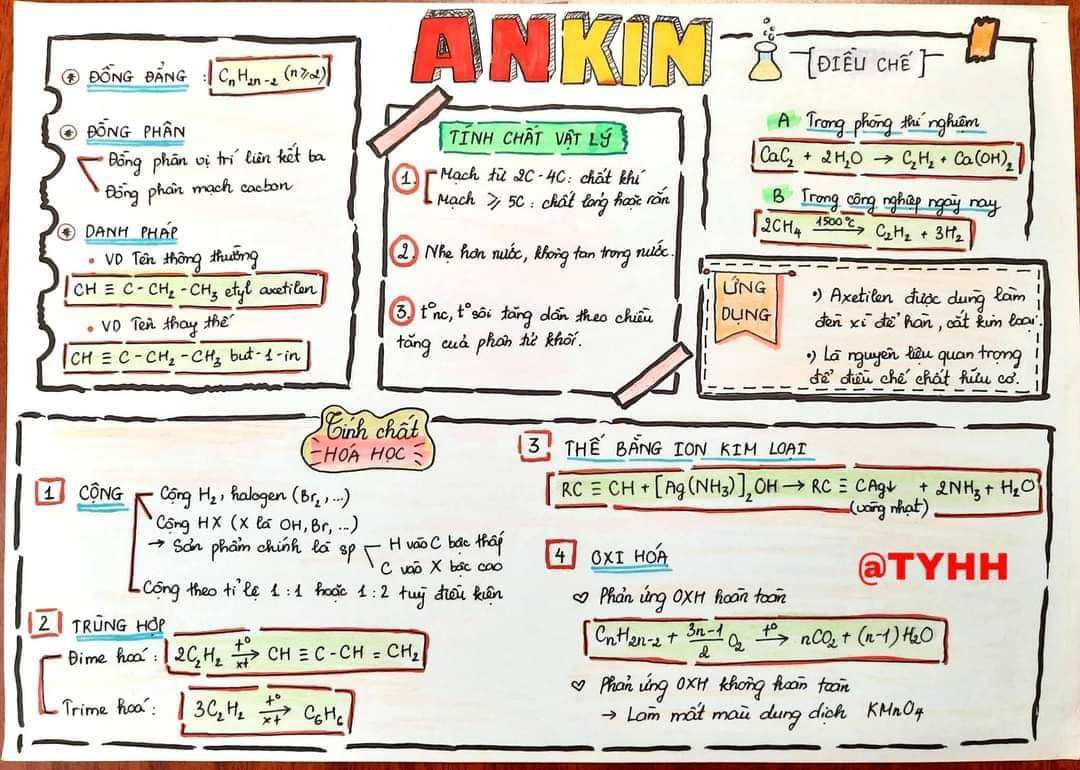 ANKIN
⊛ ĐỒNG ĐẲNG : CₙH₂ₙ₋₂ (n ⩾ 2)
⊛ ĐỒNG PHÂN
Đồng phân vị trí liên kết ba
Đồng phân mạch cacbon
⊛ DANH PHÁP
• VD Tên thông thường
CH ≡ C - CH₂ - CH₃ etyl axetilen
• VD Tên thay thế
CH ≡ C - CH₂ - CH₃ but-1-in
TÍNH CHẤT VẬT LÝ
1. Mạch từ 2C - 4C: chất khí
Mạch ⩾ 5C : chất lỏng hoặc rắn
2. Nhẹ hơn nước, không tan trong nước.
3. t°nc, t°sôi tăng dần theo chiều
tăng của phân tử khối.
[ĐIỀU CHẾ]
A Trong phòng thí nghiệm
CaC₂ + 2H₂O → C₂H₂ + Ca(OH)₂
B Trong công nghiệp ngày nay
2CH₄ 1500°C → C₂H₂ + 3H₂
ỨNG
DỤNG
•) Axetilen được dùng làm
đèn xì để hàn, cắt kim loại.
•) Là nguyên liệu quan trọng
để điều chế chất hữu cơ.
Tính chất
HÓA HỌC
1 CỘNG
Cộng H₂, halogen (Br₂,...)
Cộng HX (X là OH, Br, ...)
→ Sản phẩm chính là sp
H vào C bậc thấp
C vào X bậc cao
Cộng theo tỉ lệ 1:1 hoặc 1:2 tuỳ điều kiện
2 TRÙNG HỢP
Đime hoá: 2C₂H₂ t° xt → CH ≡ C - CH = CH₂
Trime hoá: 3C₂H₂ t° xt → C₆H₆
3 THẾ BẰNG ION KIM LOẠI
RC ≡ CH + [Ag(NH₃)]₂OH → RC ≡ CAg↓ + 2NH₃ + H₂O
(vàng nhạt)
4 OXI HÓA
@TYHH
♡ Phản ứng OXH hoàn toàn
CₙH₂ₙ₋₂ + 3n-1/2 O₂ t° → nCO₂ + (n-1)H₂O
♡ Phản ứng OXH không hoàn toàn
→ Làm mất màu dung dịch KMnO₄